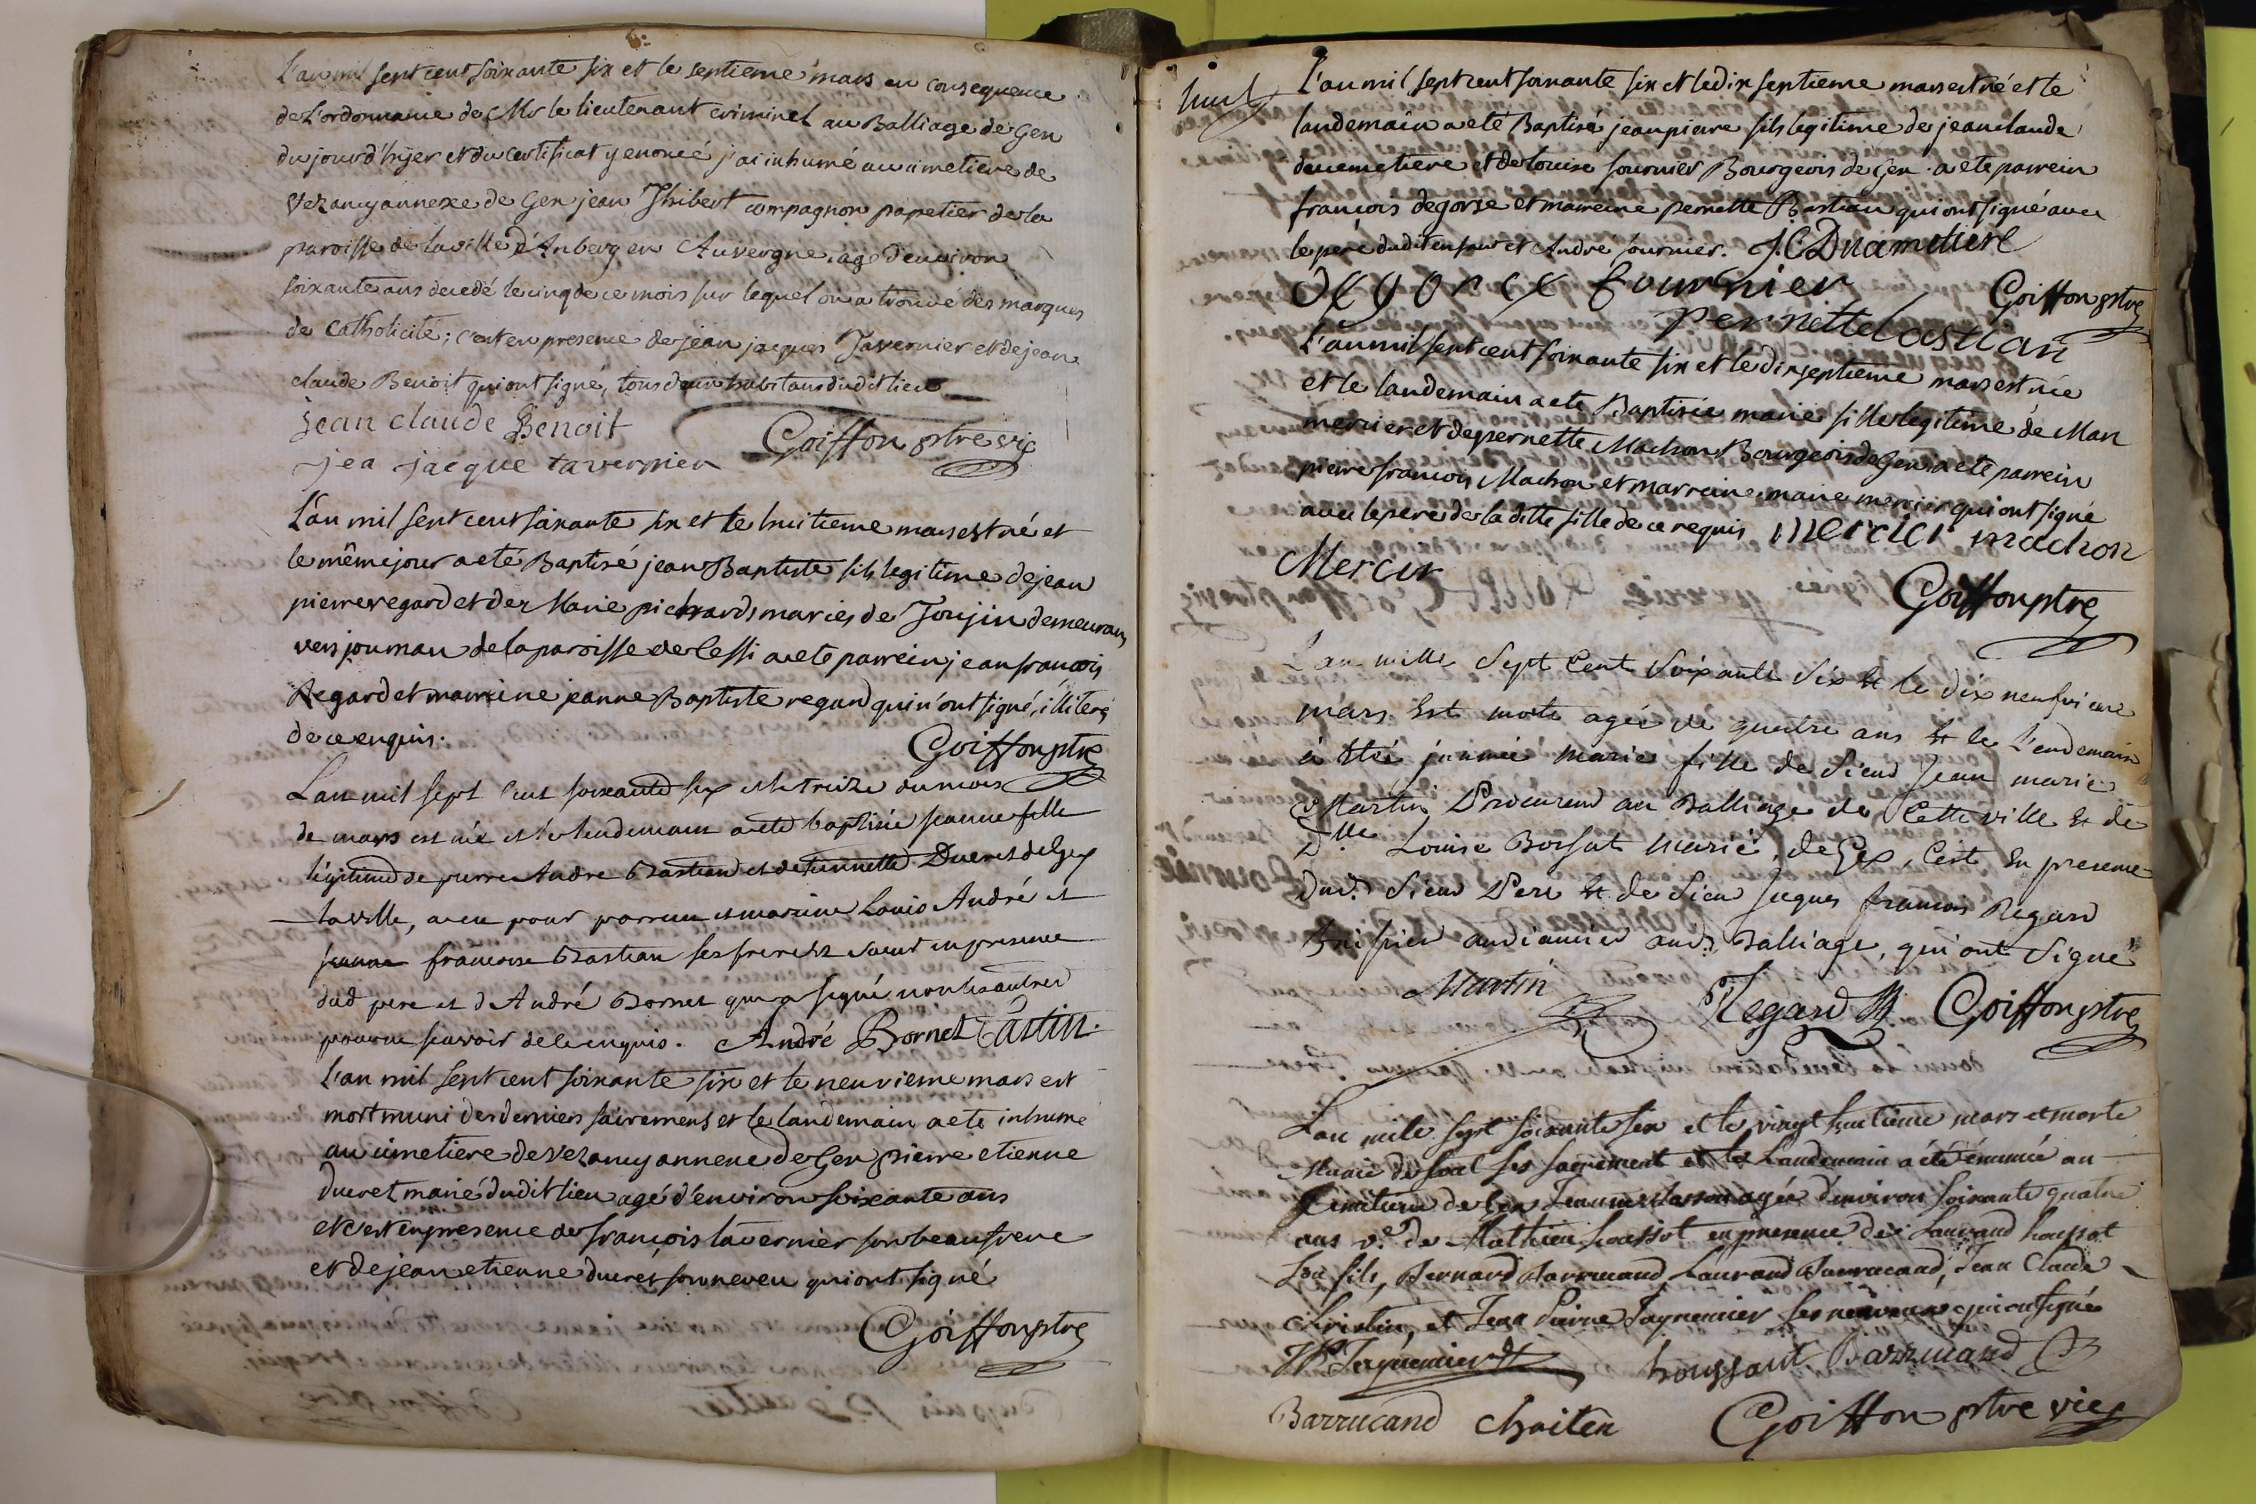 L'an mil sept cent soixante six et le septieme mars en consequence
de L'ordonnance de Mr le lieutenant criminel au Balliage de Gex
du jour d'hyer et du certificat y enoncé j'ai inhumé au cimetiere de
Vezancy annexe de Gex jean Thibert compagnon papetier de la
paroisse de la ville d'Anberg en Auvergne, agé d'environ
soixante ans decedé le cinq de ce mois sur lequel on a trouvé des marques
de Catholicité; c'est en presence de jean jacques Tavernier et de jean
claude Benoit qui ont signé, tous deux habitans dudit lieu
jean claude Benoit
jea jacque tavernier Goiffon ptre vic
L'an mil sept cent soixante six et le huitieme mars est né et
le même jour a eté Baptisé jean Baptiste fils legitime de jean
pierre regard et de Marie pichard mariés de Toujin demeurans
vers journan de la paroisse de Cessi a eté parrein jean francois
Regard et marreine jeanne Baptiste regard qui n'ont signé, illiterés
de ce enquis.
Goiffon ptre
L'an mil sept cent soixante six et le treize du mois
de mars est née et le lendemain a eté baptisée jeanne fille
légitime de pierre Andre Bastian et de Pernette Ducret de Gex
la ville, a eu pour parrein et mareine Louis André et
jeanne francoise Bastian ses frere et soeur en presence
dud pere et d'André Bornet qui a signé non les autres
pour ne scavoir de ce enquis. André Bornet Castin
L'an mil sept cent soixante six et le neuvieme mars est
mort muni des derniers sacremens et le landemain a eté inhumé
au cimetiere de Vezancy annexe de Gex pierre etienne
ducret marié dudit lieu agé d'environ soixante ans
et c'est en presence de françois tavernier son beau frere
et de jean etienne ducret son neveu qui ont signé
Goiffon ptre
huit
L'an mil sept cent soixante six et le dix septieme mars est né et le
landemain a eté Baptisé jean pierre fils legitime de jean claude
ducimetiere et de louise fournier Bourgeois de Gex. a eté parrein
françois degorse et marreine pernette Bastian qui ont signé avec
le pere dudit enfant et André fournier. J.C Ducimetiere
degorce fournier Goiffon ptre
pernette bastian
L'an mil sept cent soixante six et le dix septieme mars est née
et le landemain a eté Baptisée marie fille legitime de Marc
mercier et de pernette Machon Bourgeois de Gex a eté parrein
pierre francois Machon et marreine marie mercier qui ont signé
avec le pere de la ditte fille de ce requis mercier machon
Mercier
Goiffon ptre
L'an mille Sept Cent Soixante Six & le dix neufvieme
mars Est morte agée de quatre ans & le Lendemain
à Eté inhumée marie fille de Sieur Jean marie
Martin Procureur au Balliage de Cette ville & de
Dlle Louise Bossat mariés de Gex, C'est En presence
dud. Sieur Pere & de Sieur Jacques francois Regard
huissier audiancier aud. Balliage, qui ont Signé
Martin Regard Goiffon ptre
L'an mile sept soixante six et le vingt huitieme mars et morte
Munie de tout ses sacrement et le Landemain a été énumée au
Cimetiere de Gex Jeanne Masson agée d'environ soixante quatre
ans ve. de Mathieu houssot en presence de Laurand houssot
son fils, Bernard Barrucand, Laurand Barrucand, Jean Claude
Christin, et Jean Pierre Jaquemier ses neuveux qui ont signé
JP Jaquemier houssaut Barrucand
Barrucand Chaiten Goiffon ptre vic